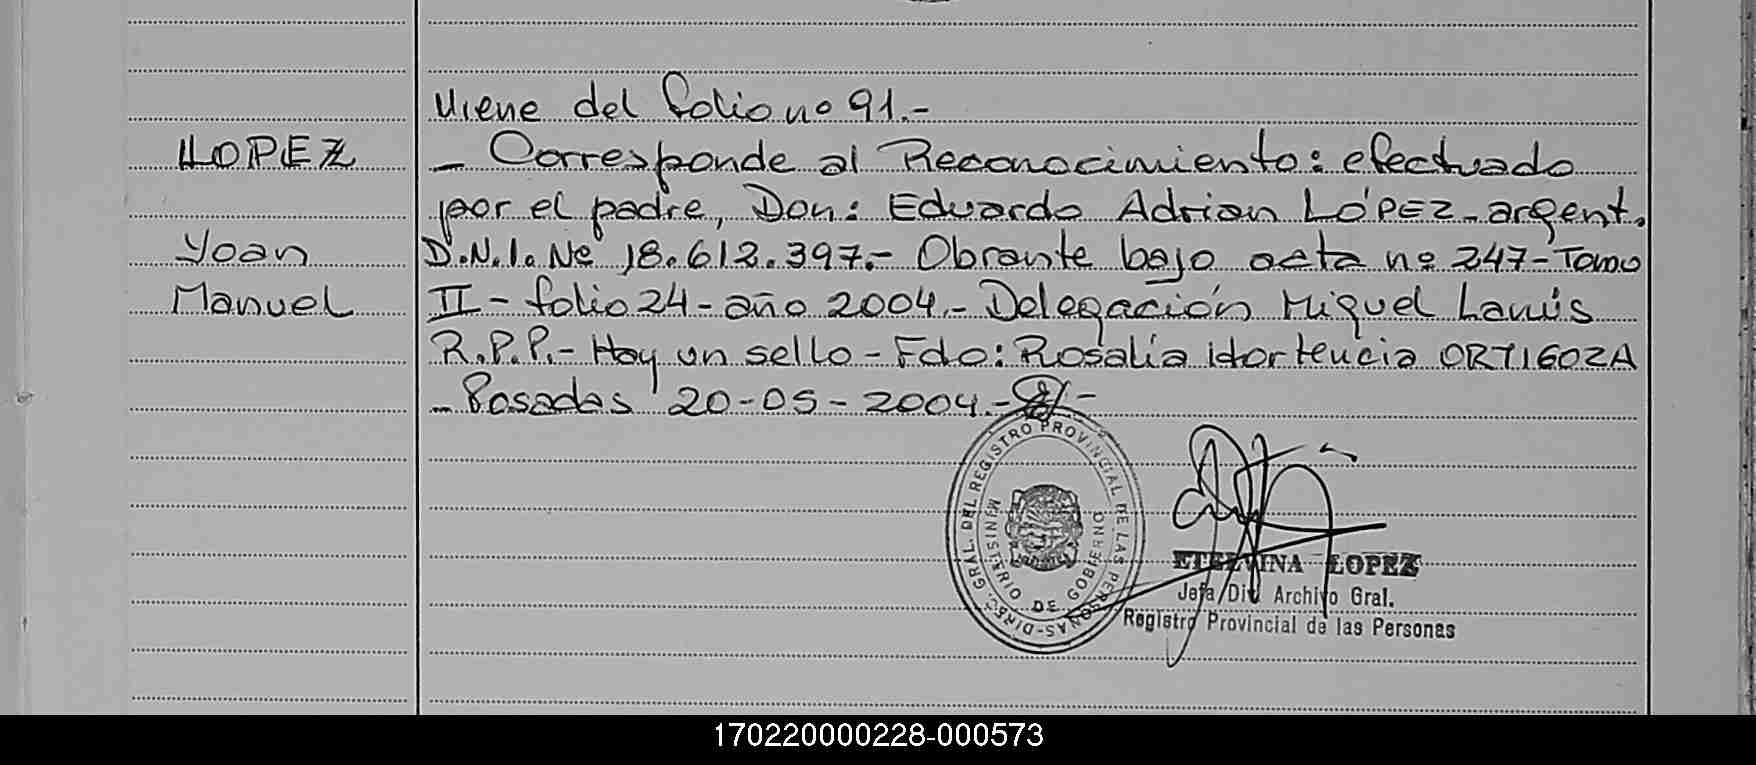 Viene del folio no 91.-
LOPEZ
- Corresponde al Reconocimiento: efectuado
por el padre, Don: Eduardo Adrian LÓPEZ - argent.
Yoan
D.N.I. Nº 18.612.397.- Obrante bajo acta nº 247 - Tomo
Manuel
II - folio 24 - año 2004.- Delegación Miguel Lanús
R.P.P.- Hay un sello - Fdo: Rosalía Hortencia ORTIGOZA
- Posadas 20-05-2004.- -
DIREC. GRAL. DEL REGISTRO PROVINCIAL DE LAS PERSONAS
MINISTERIO DE GOBIERNO
ETELVINA LOPEZ
Jefa Div. Archivo Gral.
Registro Provincial de las Personas
170220000228-000573